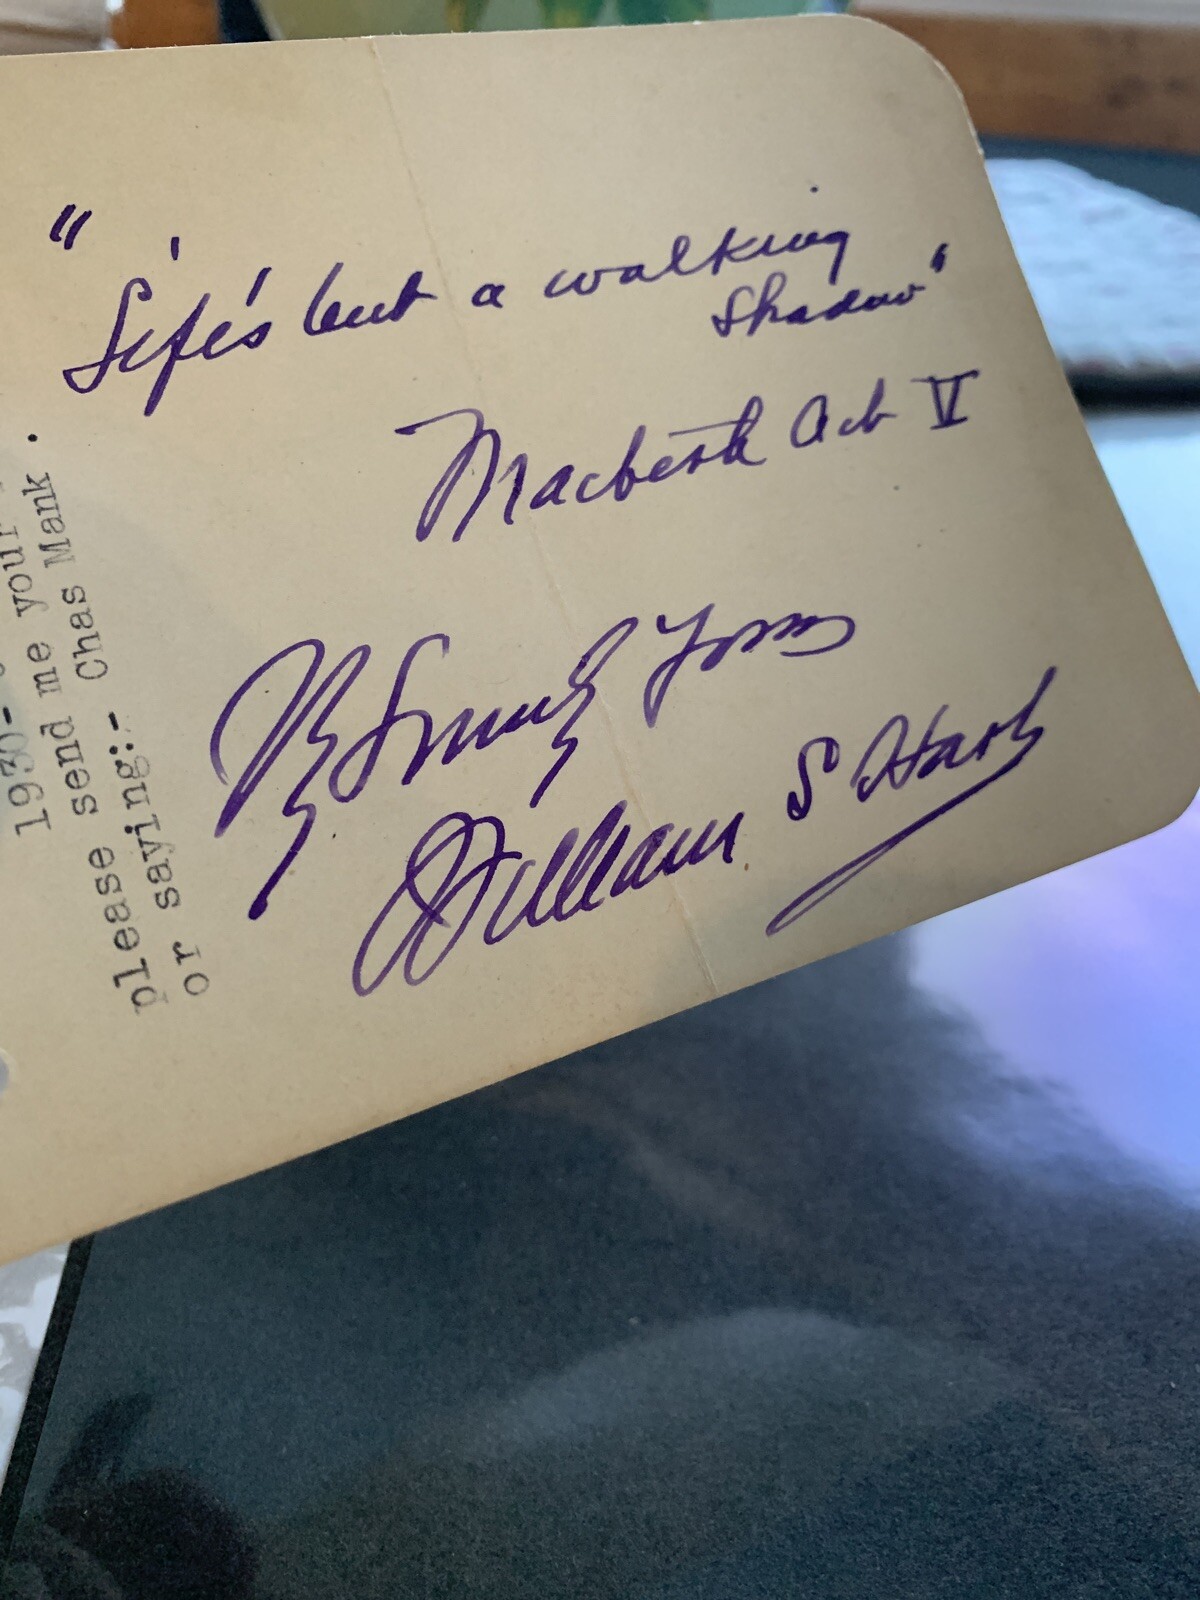 "Life's but a walking
shadow"
Macbeth Act V
Sincerely Yours
William S Hart
1930-
please send me your
or saying:- Chas Mank.